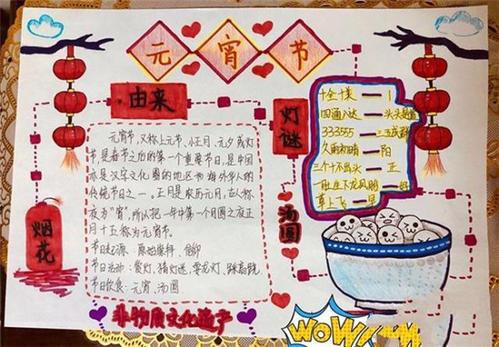 元宵节
由来
元宵节,又称上元节、小正月、元夕或灯
节,是春节之后的第一个重要节日,是中国
亦是汉字文化圈的地区和海外华人的
传统节日之一。正月是农历元月,古人称
夜为"宵",所以把一年中第一个月圆之夜正
月十五称为元宵节。
节日起源:原始崇拜、信仰
节日活动:赏灯、猜灯谜、耍龙灯、踩高跷
节日饮食:元宵、汤圆
非物质文化遗产
烟花
灯谜
十全十美 — 1
四通八达 — 头头是道
333555 — 三五成群
久雨初晴 — 阳
三个十不出头 — 正
草上飞 — 早
汤圆
WOW